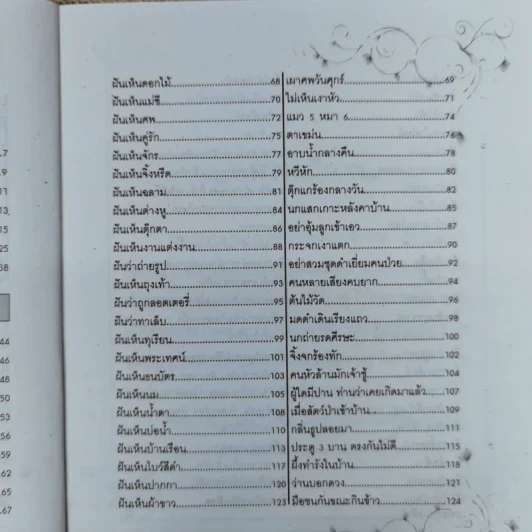 ฝันเห็นดอกไม้..........68
ฝันเห็นแม่ชี..........70
ฝันเห็นศพ..........72
ฝันเห็นคู่รัก..........75
ฝันเห็นจักร..........77
ฝันเห็นจิ้งหรีด..........79
ฝันเห็นฉลาม..........81
ฝันเห็นต่างหู..........84
ฝันเห็นตุ๊กตา..........86
ฝันเห็นงานแต่งงาน..........88
ฝันว่าถ่ายรูป..........91
ฝันเห็นถุงเท้า..........93
ฝันว่าถูกลอตเตอรี่..........95
ฝันว่าทาเล็บ..........97
ฝันเห็นทุเรียน..........99
ฝันเห็นพระเทศน์..........101
ฝันเห็นธนบัตร..........103
ฝันเห็นนม..........105
ฝันเห็นน้ำตา..........108
ฝันเห็นบ่อน้ำ..........110
ฝันเห็นบ้านเรือน..........113
ฝันเห็นโบว์สีดำ..........117
ฝันเห็นปากกา..........120
ฝันเห็นผ้าขาว..........123
เผาศพวันศุกร์..........69
ไม่เห็นเงาหัว..........71
แมว 5 หมา 6..........74
ตาเขม่น..........76
อาบน้ำกลางคืน..........78
หวีหัก..........80
ตุ๊กแกร้องกลางวัน..........82
นกแสกเกาะหลังคาบ้าน..........85
อย่าอุ้มลูกเข้าเอว..........87
กระจกเงาแตก..........90
อย่าสวมชุดดำเยี่ยมคนป่วย..........92
คนหลายเสียงคบยาก..........94
ต้นไม้วัด..........96
มดดำเดินเรียงแถว..........98
นกถ่ายรดศีรษะ..........100
จิ้งจกร้องทัก..........102
คนหัวล้านมักเจ้าชู้..........104
ผู้ใดมีปาน ท่านว่าเคยเกิดมาแล้ว..........107
เมื่อสัตว์ป่าเข้าบ้าน..........109
กลิ่นธูปลอยมา..........111
ประตู 3 บาน ตรงกันไม่ดี..........115
ผึ้งทำรังในบ้าน..........118
ว่านบอกดวง..........121
มือชนกันขณะกินข้าว..........124